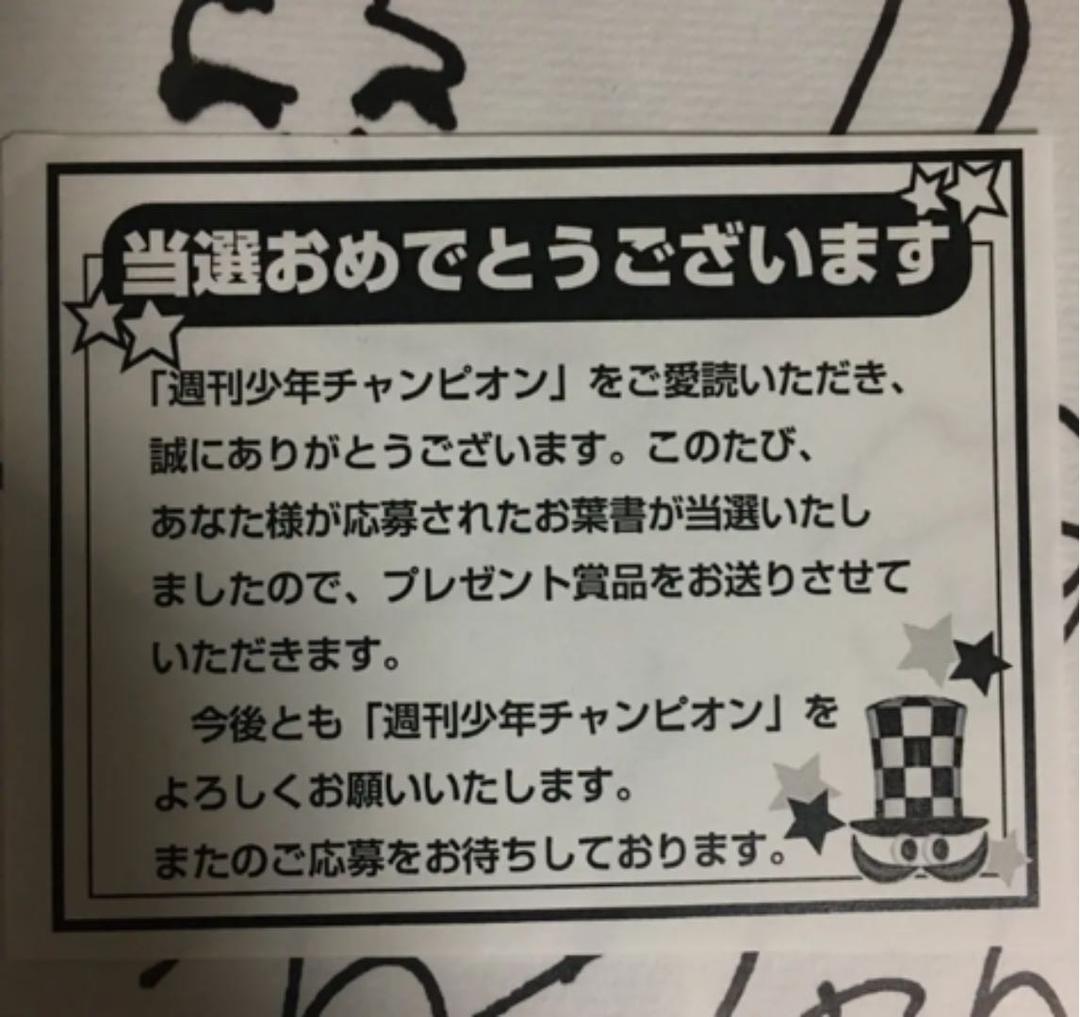 当選おめでとうございます
「週刊少年チャンピオン」をご愛読いただき、
誠にありがとうございます。このたび、
あなた様が応募されたお葉書が当選いたし
ましたので、プレゼント賞品をお送りさせて
いただきます。
今後とも「週刊少年チャンピオン」を
よろしくお願いいたします。
またのご応募をお待ちしております。